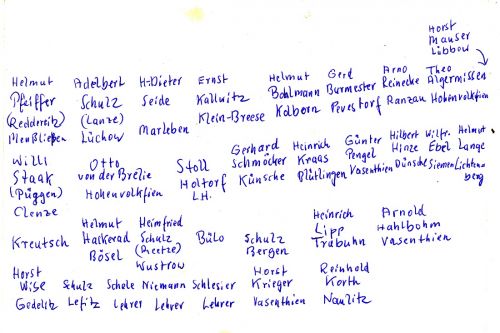 Horst
Mauser
Lübbow
Helmut Adelbert H-Dieter Ernst Helmut Gerd Arno Theo
Pfeiffer Schulz Seide Kallnitz Bohlmann Burmester Reinecke Algermissen
(Reddereitz) (Lanze) Klein-Breese Kolborn Pevestorf Ranzau Hohenvolkfien
Lüchow Marleben
Willi Otto Stoll Gerhard Heinrich Günter Hilbert Wilfr. Helmut
Staak von der Brelie Holtorf Schmöcker Kraas Pengel Hinze Ebel Lange
(Püggen) Hohenvolkfien L.H. Künsche Plütlingen Vasenthien Dünsche Siemen Lichten-
Clenze berg
Helmut Heimfried Heinrich Arnold
Kreutsch Haskerad Schulz Bülo Schulz Lipp Hahlbohm
Bösel (Preetze) Bergen Trabuhn Vasenthien
Wustrow
Horst Horst Reinhold
Wise Schulz Schele Niemann Schlesier Krieger Korth
Gedelitz Lefitz Lehrer Lehrer Lehrer Vasenthien Naulitz